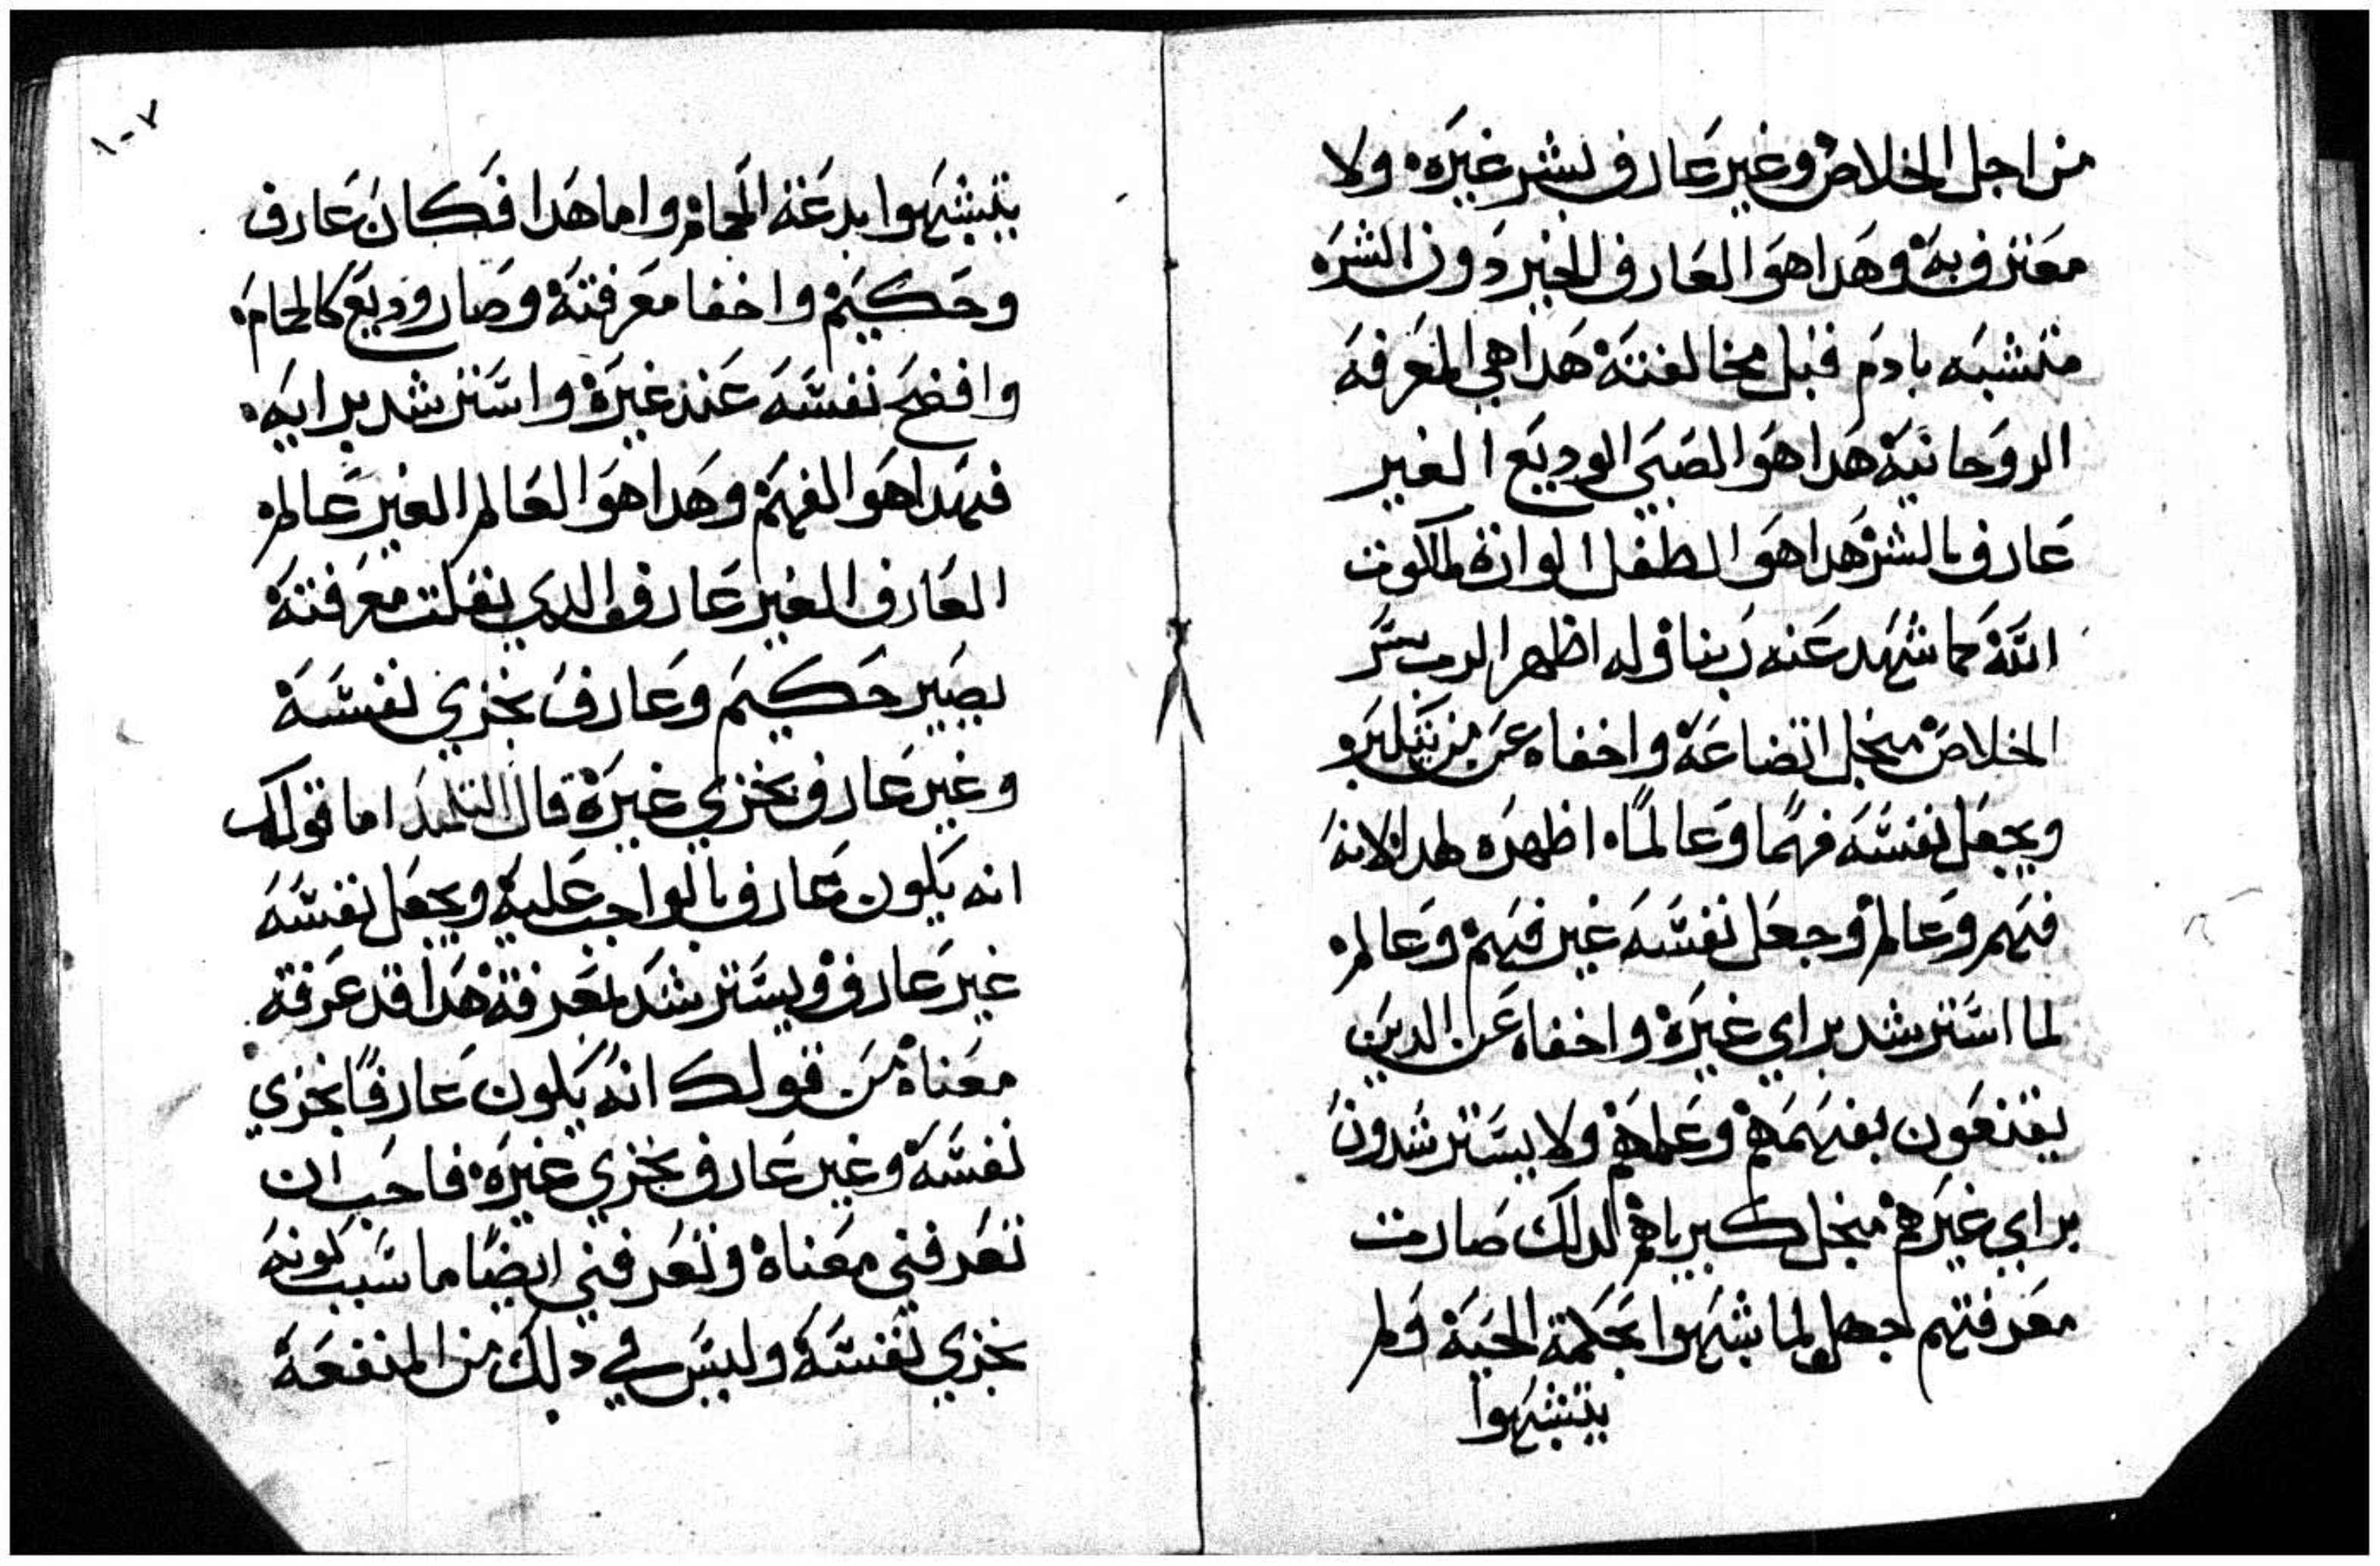 من اجل الخلاص وغير عارف بشر غيره ولا
معترف به وهدا هو العارف الخير دون الشره
متشبه بادم قبل مخالفته هدا هي المعرفه
الروحانيه هدا هو الصبي الوديع الغير
عارف بالشر هدا هو الطفل الوارة ملكوت
الله كما شهد عنه ربنا قوله اظهر الرب سر
الخلاص منجل اتضاعه واخفاه عن من يتكبر
ويجعل نفسه فهما وعالما اظهره لهدا لانه
فهم وعالم وجعل نفسه غير فهم وعالم
لما استرشد براي غيره واخفاه عن الدين
يقنعون بفهمهم وعلمهم ولا يسترشدون
براي غيرهم منجل كبرياهم لدلك صارت
معرفتهم جهل لما شبهوا بحكمة الحيه ولم
يتشبهوا
١٠٧
يتشبهوا بدعة الحمام واما هدا فكان عارف
وحكيم واخفا معرفته وصار وديع كالحمام
وافضح نفسه عند غيره واسترشد برايه
فهدا هو الفهم وهدا هو العالم الغير عالم
العارف الغير عارف والدي نقلت معرفته
يصير حكيم وعارف بخزي نفسه
وغير عارف بخزي غيره قال التلميد اما قولك
انه يكون عارف بالواجب عليه ويجعل نفسه
غير عارف ويسترشد بمعرفة هدا قد عرفت
معناه من قولك انه يكون عارفا بخزي
نفسه وغير عارف بخزي غيره فاحب ان
تعرفني معناه وتعرفني ايضا ما سبب كونه
بخزي نفسه وليس في دلك من المنفعه